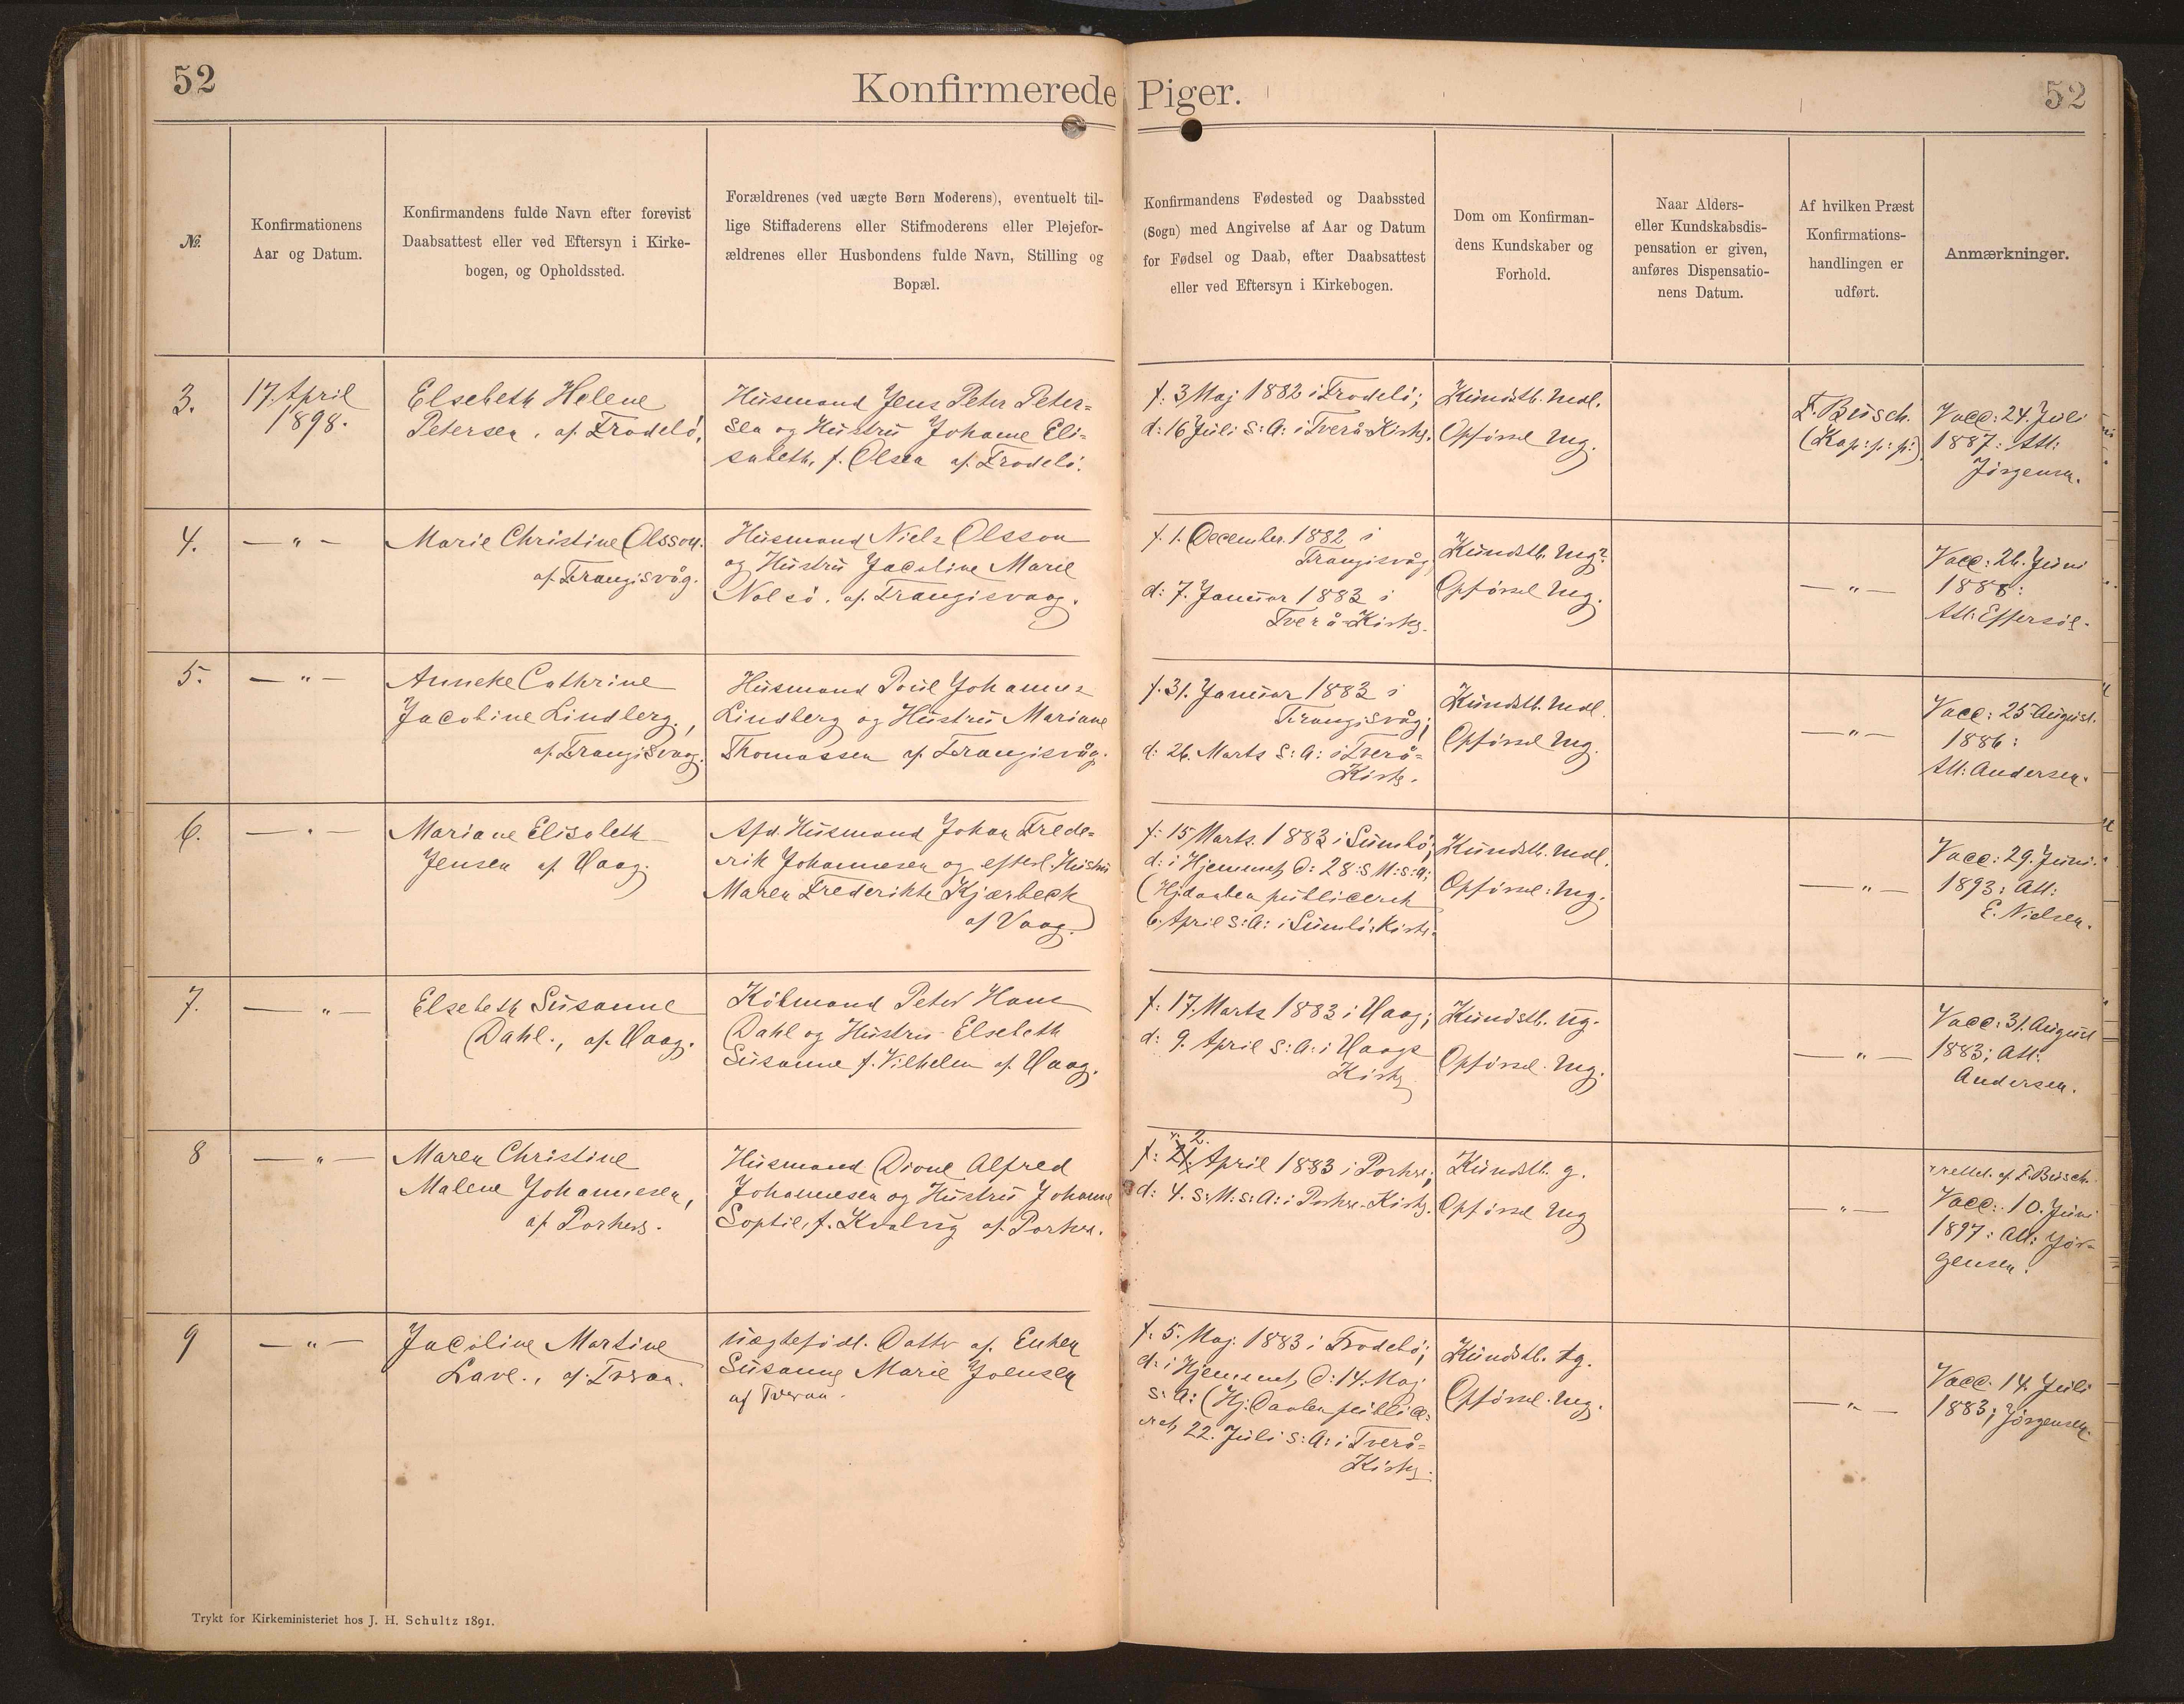 52
Konfirmerede Piger.
52
№.
Konfirmationens
Aar og Datum.
Konfirmandens fulde Navn efter forevist
Daabsattest eller ved Eftersyn i Kirke-
bogen, og Opholdssted.
Forældrenes (ved uægte Børn Moderens), eventuelt til-
lige Stiffaderens eller Stifmoderens eller Plejefor-
ældrenes eller Husbondens fulde Navn, Stilling og
Bopæl.
Konfirmandens Fødested og Daabssted
(Sogn) med Angivelse af Aar og Datum
for Fødsel og Daab, efter Daabsattest
eller ved Eftersyn i Kirkebogen.
Dom om Konfirman-
dens Kundskaber og
Forhold.
Naar Alders-
eller Kundskabsdis-
pensation er given,
anføres Dispensatio-
nens Datum.
Af hvilken Præst
Konfirmations-
handlingen er
udført.
Anmærkninger.
3.
17. April
1898.
Elsebeth Helene
Petersen, af Frodebö,
Husmand Jens Peter Peter=
sen og Hustru Johanne Eli=
sabeth, f. Olsen af Frodebö.
f: 3 Maj 1882 i Frodebö;
d: 16 Juli S: A: i Tverå-Kirke.
Kundsk. mdl.
Opførsel mg.
F. Busch.
(Kap: p: p:)
Vacc: 24. Juli
1887: Att:
Jörgensen.
4.
— " —
Marie Christine Olsson.
af Trangisvåg.
Husmand Niels Olsson
og Hustru Jacobine Marie
Nolsö. af Trangisvaag.
f. 1. December 1882 i
Trangisvåg
d: 7. Januar 1883 i
Tverå-Kirke.
Kundsk. mg?
Opførsel mg.
— " —
Vacc: 26. Juni
1888:
Att: Effersöe.
5.
— " —
Anneke Cathrine
Jacobine Lindberg,
af Trangisvaag.
Husmand Poul Johannes
Lindberg og Hustru Mariane
Thomassen af Trangisvåg.
f. 31. Januar 1883 i
Trangisvåg;
d: 26. Marts S: A: i Tverå=
Kirke.
Kundsk. mdl.
Opførsel mg.
— " —
Vacc: 25 August.
1886:
Att: Andersen.
6.
— " —
Mariane Elisabeth
Jensen af Vaag.
Afd. Husmand Johan Frede=
rik Johannesen og efterl. Hustru
Maren Frederikke Kjærbeck
af Vaag.
f: 15 Marts. 1883 i Sumbö;
d: i Hjemmet, d: 28: S: M: s: A;
(Hjdaaben publiceret
6. April S: A: i Sumbö: Kirke.
Kundsk. mdl.
Opførsel: mg.
— " —
Vacc: 29. Juni.
1893: Att:
E. Nielsen.
7.
— " —
Elsebeth Susanne
Dahl., af Vaag.
Köbmand Peter Hans
Dahl og Hustru Elsebeth
Susanne f. Vilhelm af Vaag.
f: 17. Marts 1883 i Vaag;
d: 9. April S: A: i Vaags
Kirke
Kundsk. ug.
Opførsel. mg.
— " —
Vacc: 31. August
1883; Att:
Andersen.
8
— " —
Maren Christine
Malene Johannesen,
af Porkere.
Husmand Dione Alfred
Johannesen og Hustru Johanne
Sophie, f. Kvalvig af Porkere.
2.
f: 21. April 1883 i Porkere;
d: 4. S: M: s: A: i Porkere-Kirke.
Kundsk. g.
Opførsel mg
— " —
rettet. af F. Busch.
Vacc: 10. Juni
1897: Att: Jör-
gensen.
9
— " —
Jacobine Martine
Lave., af Tveraa.
uægtefödt. Datter af. Enken
Susanne Marie Joensen
af Tveraa.
f. 5. Maj. 1883 i Frodebö;
d: i Hjemmet, d: 14. Maj
s: A: (Hj: Daaben public=
eret, 22. Juli S: A: i Tverå=
Kirke.
Kundsk. tg.
Opførsel. mg.
— " —
Vacc. 14. Juli
1883; Jörgensen.
Trykt for Kirkeministeriet hos J. H. Schultz 1891.